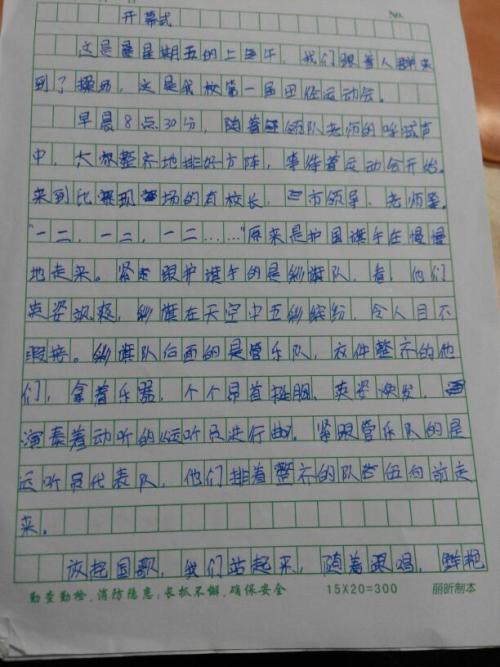 No.
开幕式
这是星期五的上午，我们跟着人群来
到了操场，这是我校第一届田径运动会。
早晨8点30分，随着领队老师的呼喊声
中，大都整齐地排好方阵，事件着运动会开始。
来到比赛现场的有校长，市领导，老师等。
"一二，一二，一二……"原来是护国旗手在慢慢
地走来。紧跟护旗手的是彩旗队，看，他们
英姿飒爽，彩旗在天空中五彩缤纷，令人目不
暇接。彩旗队后面的是管乐队，衣件整齐的他
们，拿着乐器，个个昂首挺胸，英姿焕发，
演奏着动听的《运听员进行曲。紧跟管乐队的是
运听员代表队，他们排着整齐的队伍向前走
来。
放起国歌，我们站起来，随着跟唱，鲜艳
勤查勤检，消防隐患；长抓不懈，确保安全 15X20=300 丽昕制本